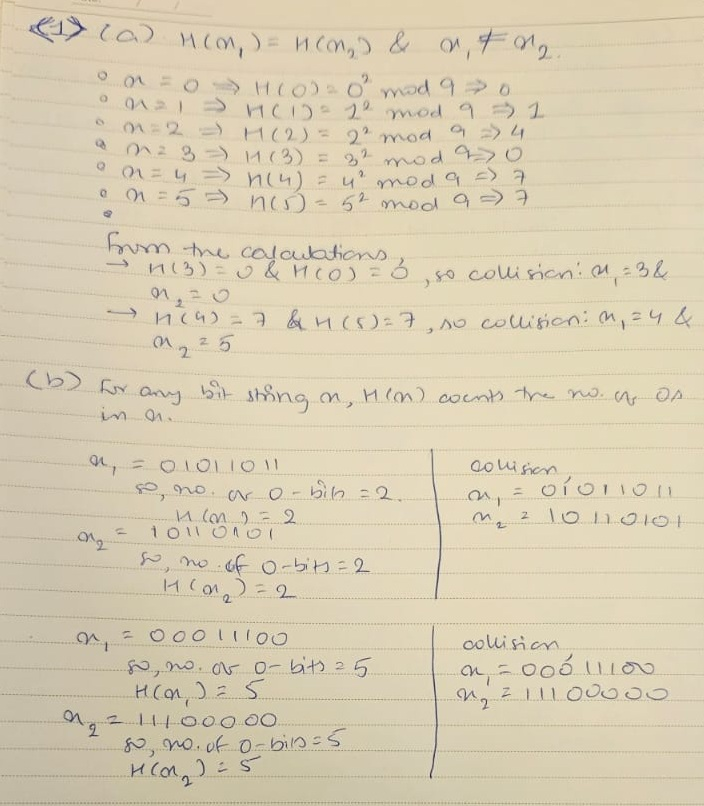 (1) (a) H(x₁) = H(x₂) & x₁ ≠ x₂.
° x = 0 ⇒ H(0) = 0² mod 9 ⇒ 0
° x = 1 ⇒ H(1) = 1² mod 9 ⇒ 1
° x = 2 ⇒ H(2) = 2² mod 9 ⇒ 4
° x = 3 ⇒ H(3) = 3² mod 9 ⇒ 0
° x = 4 ⇒ H(4) = 4² mod 9 ⇒ 7
° x = 5 ⇒ H(5) = 5² mod 9 ⇒ 7
°
From the calculations,
→ H(3) = 0 & H(0) = 0, so collision: x₁ = 3 &
x₂ = 0
→ H(4) = 7 & H(5) = 7, so collision: x₁ = 4 &
x₂ = 5
(b) For any bit string x, H(x) counts the no. of 0s
in x.
x₁ = 01011011
so, no. of 0-bits = 2.
H(x₁) = 2
x₂ = 10110101
so, no. of 0-bits = 2
H(x₂) = 2
collision,
x₁ = 01011011
x₂ = 10110101
x₁ = 00011100
so, no. of 0-bits = 5
H(x₁) = 5
x₂ = 11100000
so, no. of 0-bits = 5
H(x₂) = 5
collision,
x₁ = 00011100
x₂ = 11100000